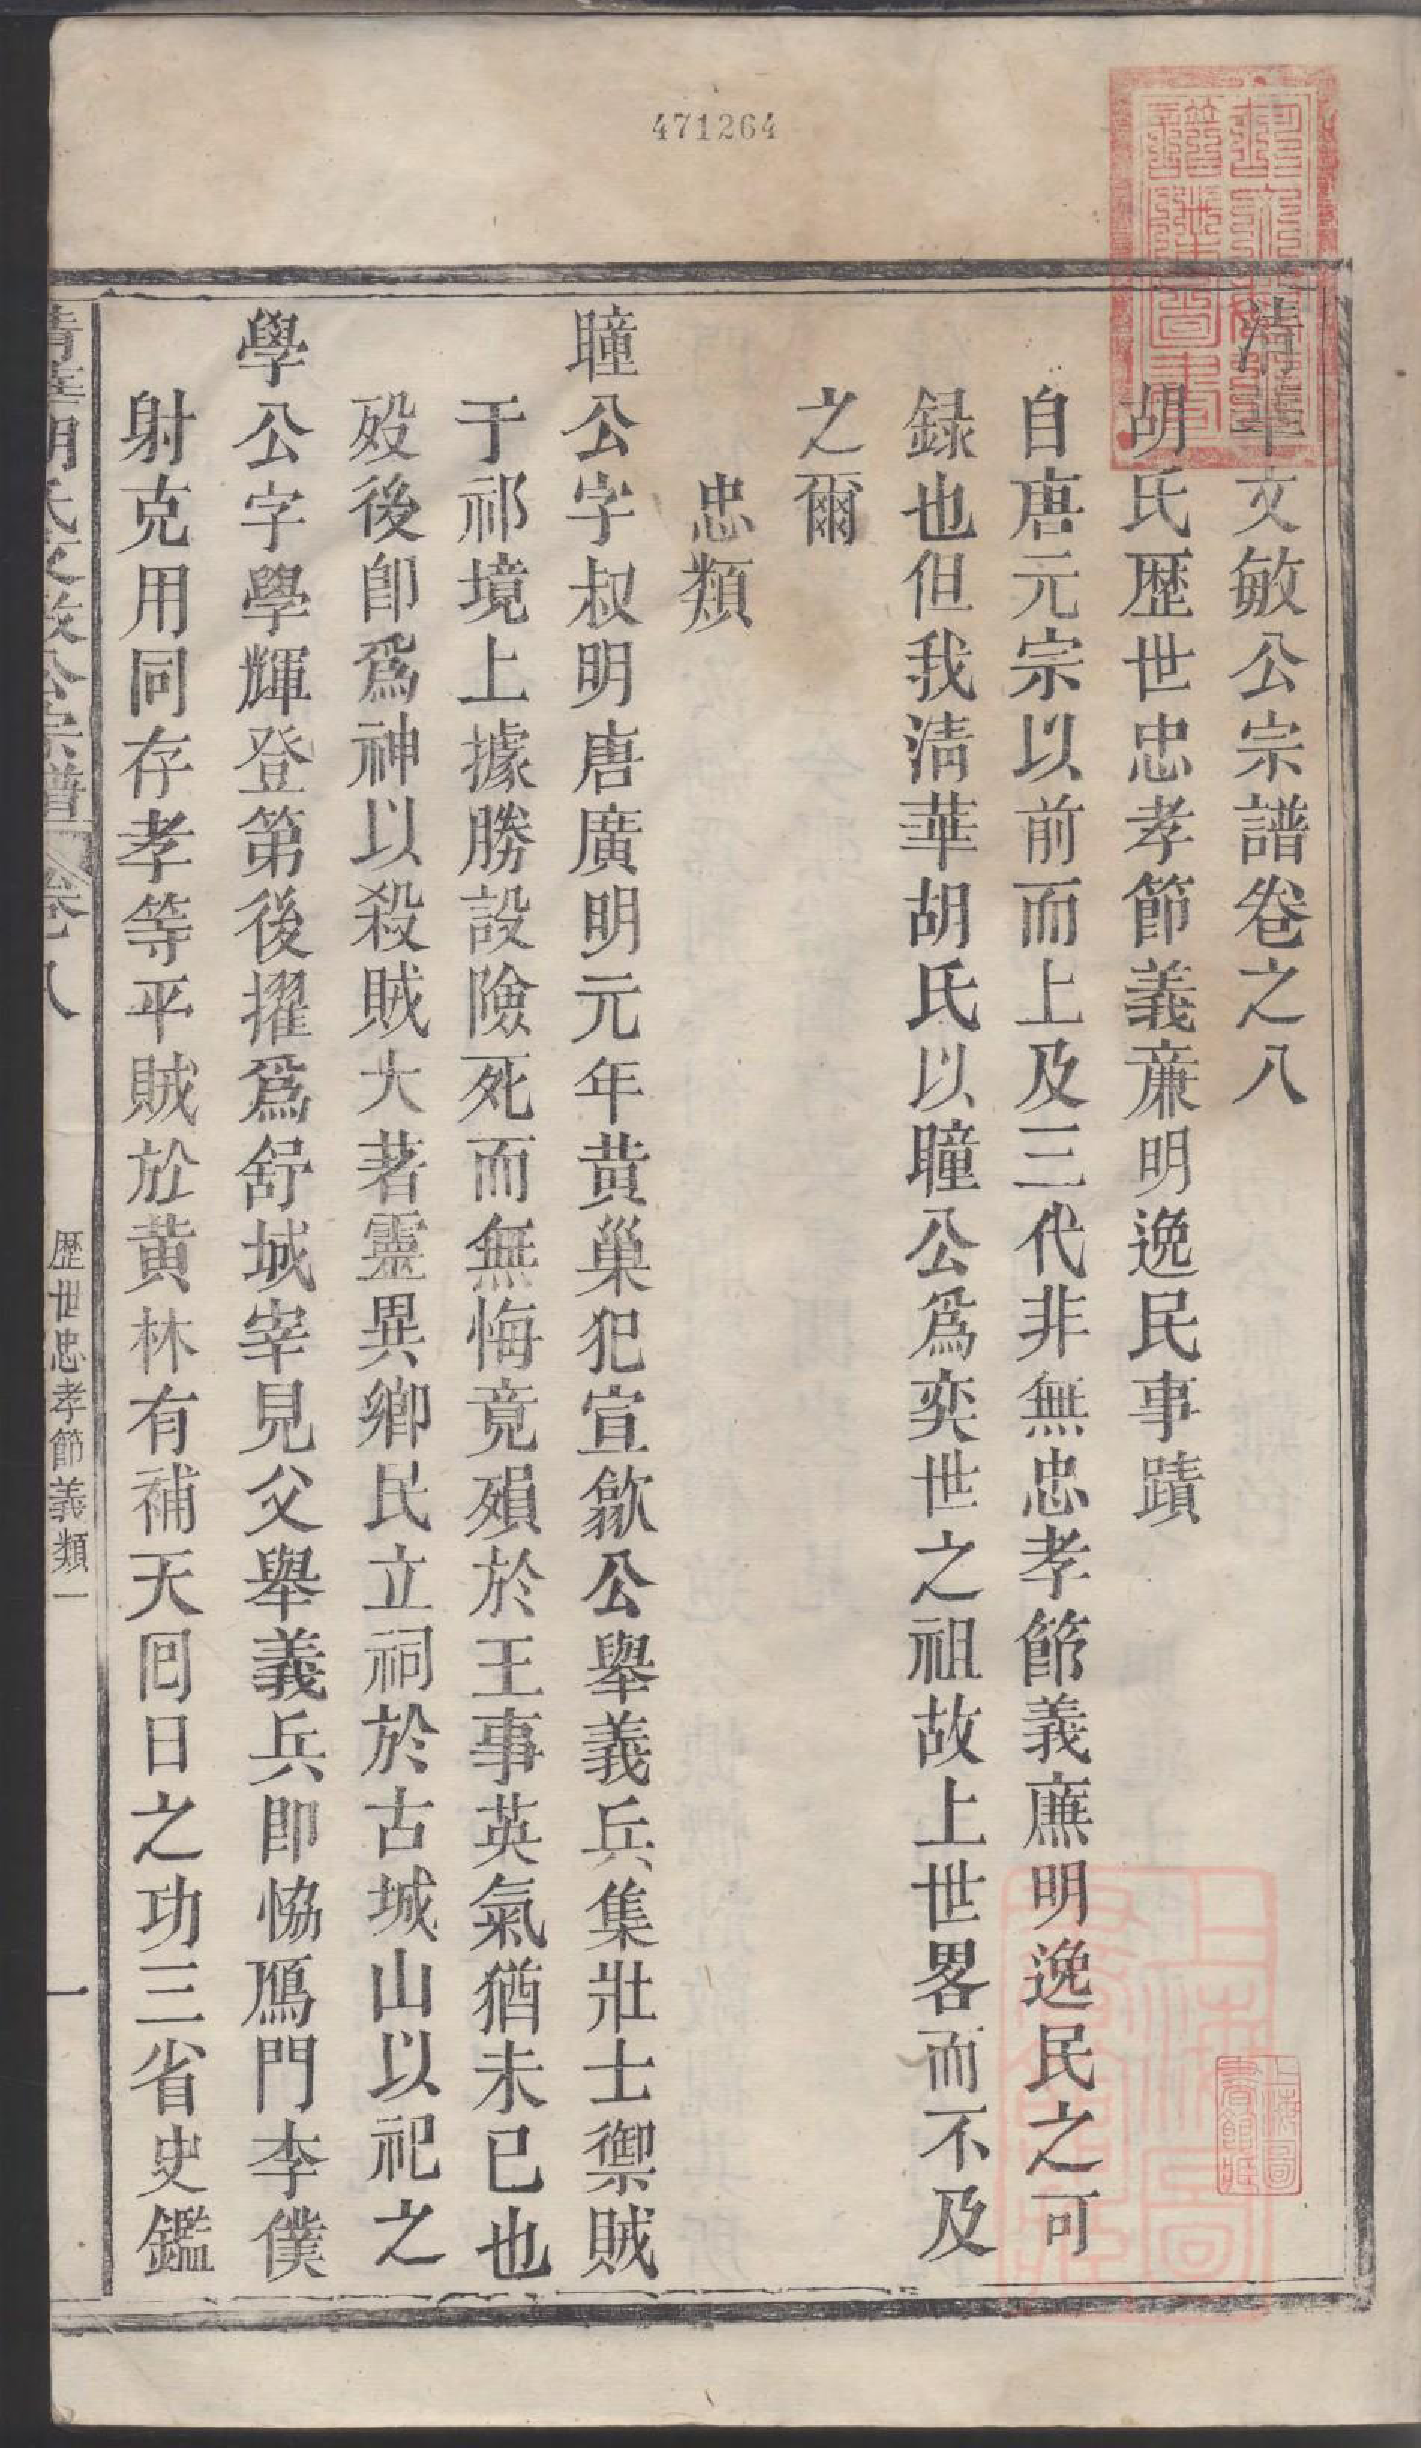 471264
清華文敏公宗譜卷之八
胡氏歷世忠孝節義廉明逸民事蹟
自唐元宗以前而上及三代非無忠孝節義廉明逸民之可
録也但我清華胡氏以瞳公爲奕世之祖故上世畧而不及
之爾
忠類
瞳公字叔明唐廣明元年黃巢犯宣歙公舉義兵集壯士禦賊
于祁境上據勝設險死而無悔竟殞於王事英氣猶未已也
歿後卽爲神以殺賊大著靈異鄉民立祠於古城山以祀之
學公字學輝登第後擢爲舒城宰見父舉義兵即恊鴈門李僕
射克用同存孝等平賊於黃林有補天囘日之功三省史鑑
清華胡氏文敏公宗譜 卷八 歷世忠孝節義類一 一
上海圖書館藏